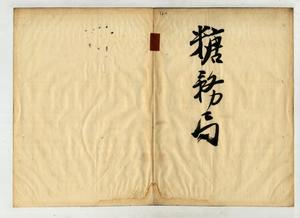 糖務局